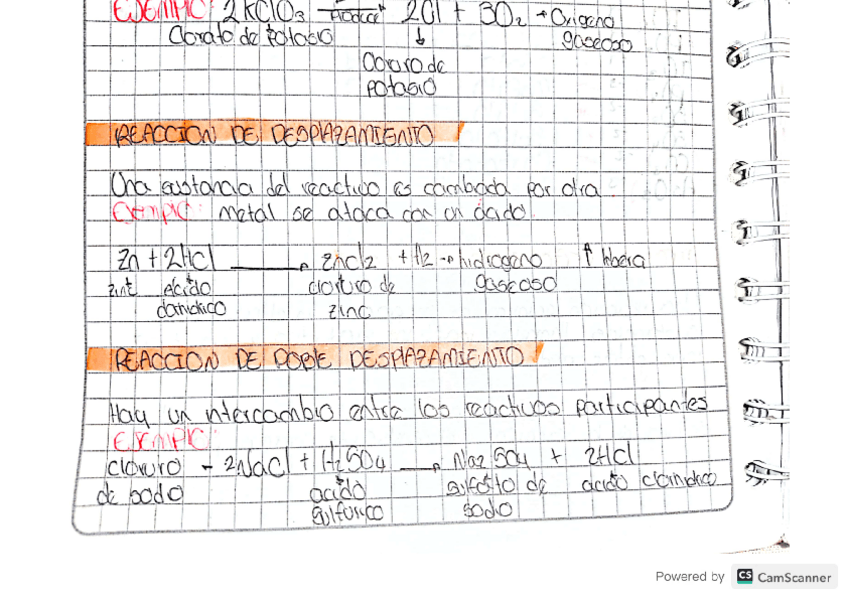 EJEMPLO: 2KClO3 produce 2Cl + 3O2 → Oxigeno
Clorato de potasio gaseoso
Cloruro de
potasio
REACCION DE DESPLAZAMIENTO
Una sustancia del reactivo es cambiada por otra
Ejemplo: metal se ataca con un ácido.
Zn + 2HCl → ZnCl2 + H2 → hidrogeno ↑ libera
zinc ácido cloruro de gaseoso
clorhidrico zinc
REACCION DE DOBLE DESPLAZAMIENTO
Hay un intercambio entre los reactivos participantes
EJEMPLO:
cloruro - 2NaCl + H2SO4 → Na2SO4 + 2HCl
de sodio acido sulfato de acido clorhidrico
sulfurico sodio
Powered by CS CamScanner